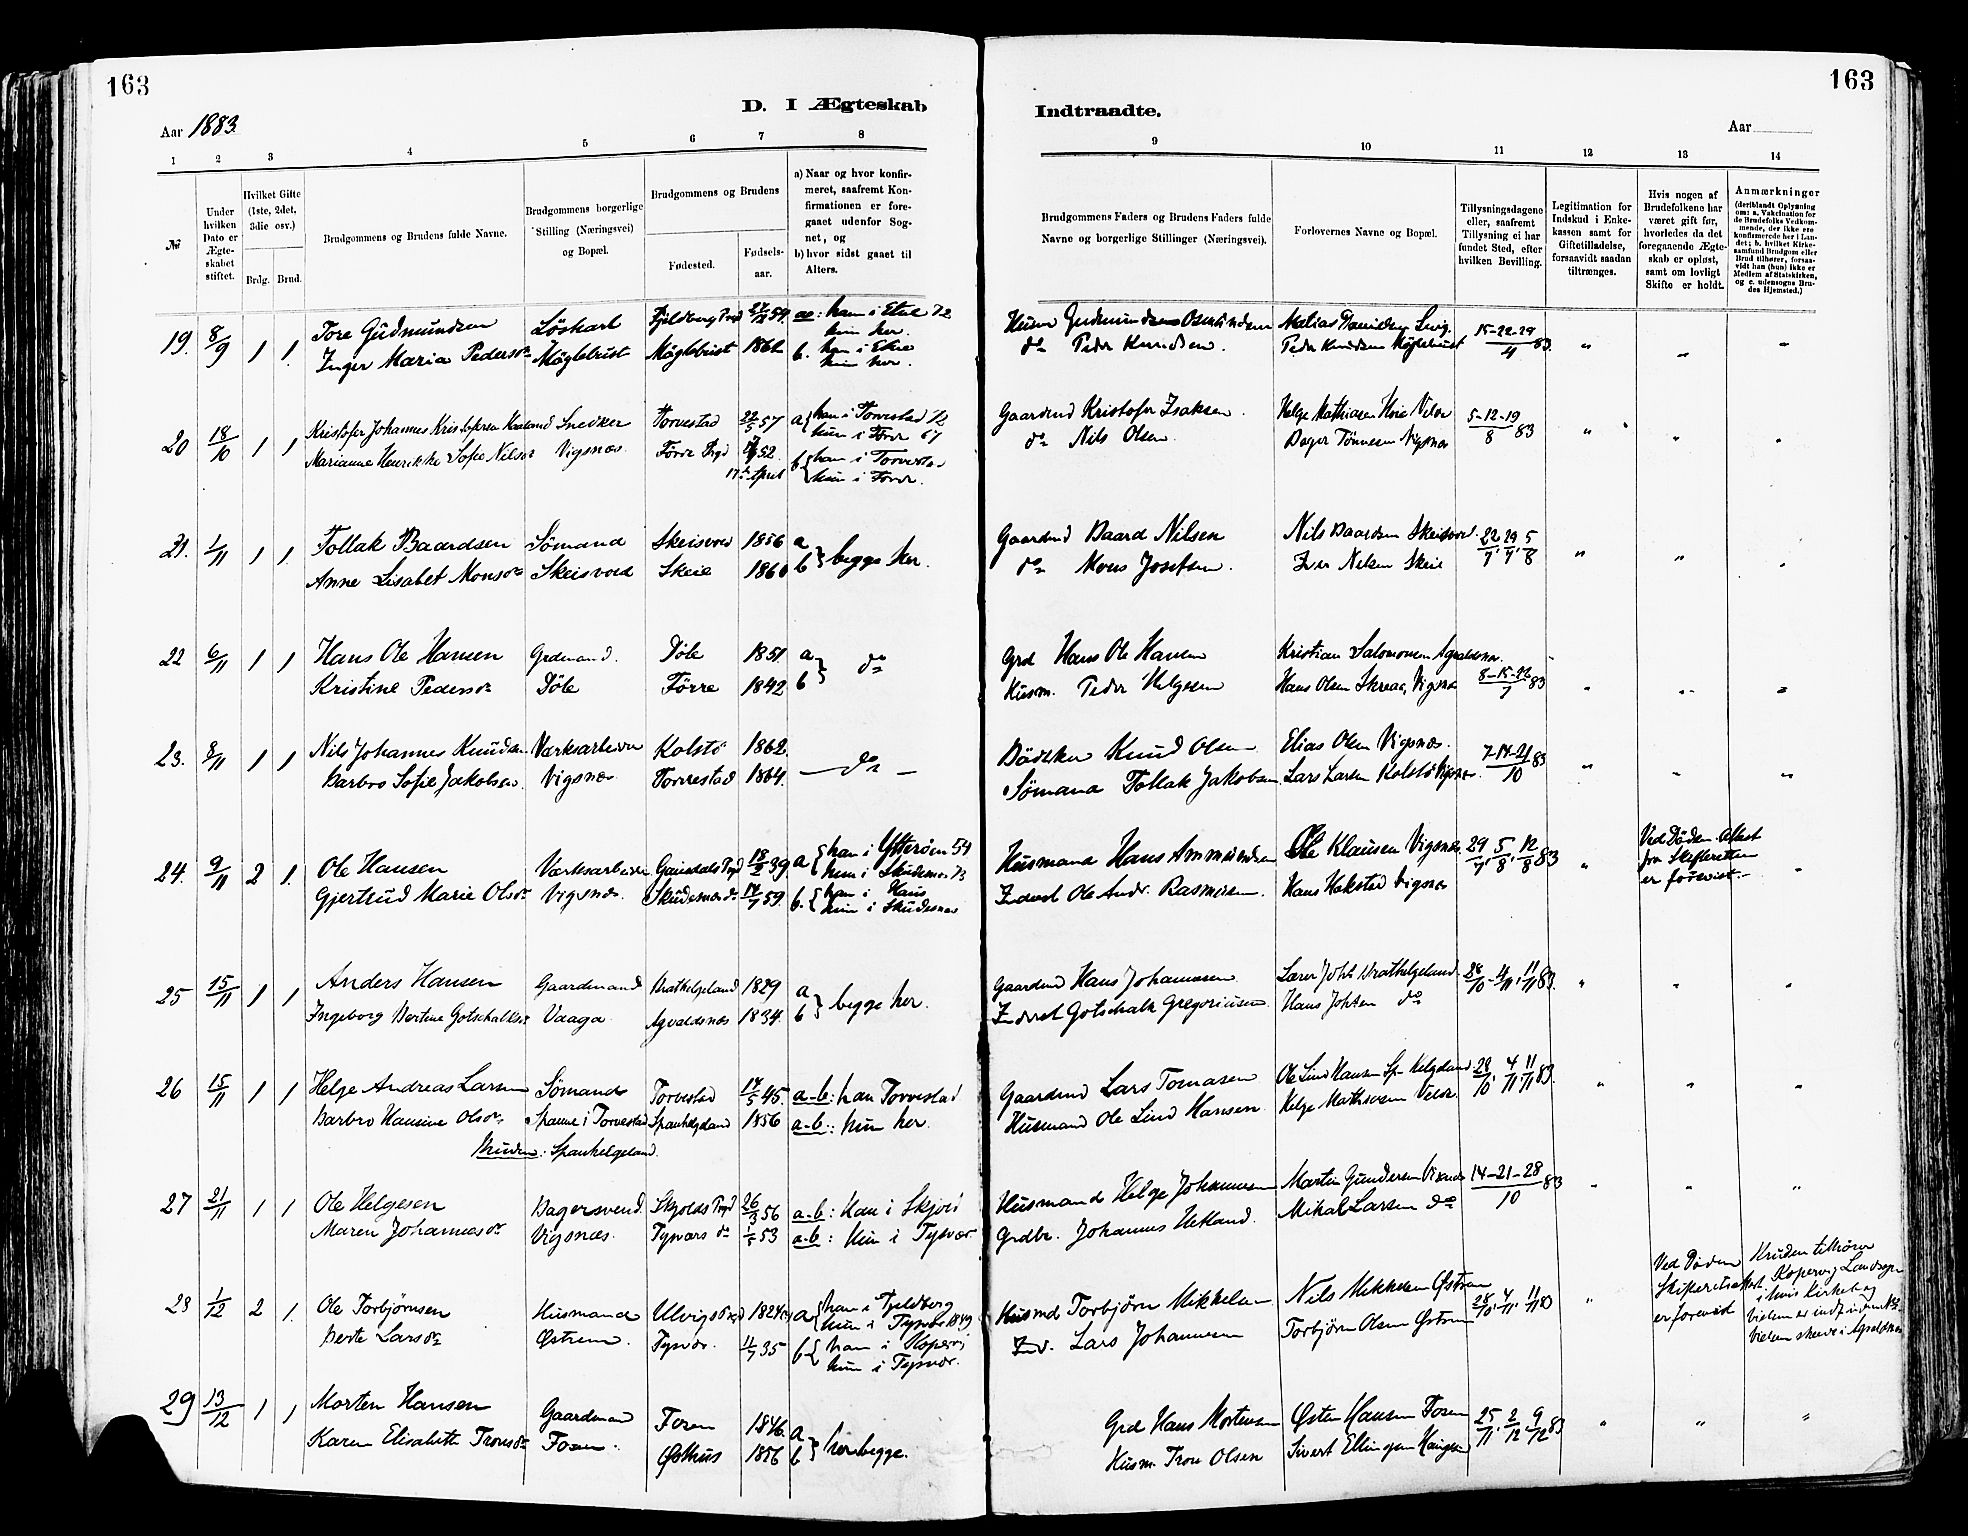 163
163
D. I Ægteskab Indtraadte.
Aar 1883.
Aar
1 2 3 4 5 6 7 8 9 10 11 12 13 14
№
Under hvilken Dato er Ægteskabet stiftet.
Hvilket Gifte (1ste, 2det, 3die osv.)
Brdg. Brud.
Brudgommens og Brudens fulde Navne.
Brudgommens borgerlige Stilling (Næringsvei) og Bopæl.
Brudgommens og Brudens
Fødested.
Fødselsaar.
a) Naar og hvor konfirmeret, saafremt Konfirmationen er foregaaet udenfor Sognet, og
b) hvor sidst gaaet til Alters.
Brudgommens Faders og Brudens Faders fulde Navne og borgerlige Stillinger (Næringsvei).
Forlovernes Navne og Bopæl.
Tillysningsdagene eller, saafremt Tillysning ei har fundet Sted, efter hvilken Bevilling.
Legitimation for Indskud i Enkekassen samt for Giftetilladelse, forsaavidt saadan tiltrænges.
Hvis nogen af Brudefolkene har været gift før, hvorledes da det foregaaende Ægteskab er opløst, samt om lovligt Skifte er holdt.
Anmærkninger (deriblandt Oplysning om: a. Vakcination for de Brudefolks Vedkommende, der ikke ere konfirmerede her i Landet; b. hvilket Kirkesamfund Brudgom eller Brud tilhører, forsaavidt han (hun) ikke er Medlem af Statskirken, og c. udensogns Brudes Hjemsted.)
19. 8/9 1 1. Tore Gudmundsen Løskarl 27/12 59. a: han i Etne 72
hun her.
Inger Maria Pedersdr Møglebust Møglebust 1862 b. han i Etne
hun her.
Husm Gudmund
do Peder Knudsen. Peder Knudsen Møglebust 15-22-29/4 83.
20 18/10 1 1 Kristofer Johannes Kristofersen Snedker Torvestad 22/5 57 a han i Torvestad 72
hun i Førre 67
Marianne Henrikke Sofie Nilsdr Vigsnæs Førre 52. b han i Torvestad
17de April hun i Førre.
Gaardmd Kristofer Isaksen. Helge Mathiasen
do Nils Olsen. Tønnesen Vigsnæs 5-12-19/8 83
21. 1/11 1 1. Tollak Baardsen Sømand Skeisvold 1856 a
Anne Lisabet Monsdr Skeisvold Skeie 1860 b begge her.
Gaardmd Baard Nilsen Nils Baardsen Skeisvold 22/7, 29/7, 5/8
do Mons Josefsen. Iver Nilsen Skeie
22 6/11 1 1 Hans Ole Hansen Grdmand. Døle 1851. a
Kristine Pedersdr Døle Førre 1842 b do
Grd Hans Ole Hansen Kristian Salomonsen Agvaldsnes
Husm. Peder Helgesen Hans Olsen Skreae, Vigsnæs 8-15-22/7 83
23. 8/11 1 1 Nils Johannes Knudsen Værksarbeider Kolstø 1862.
Barbro Sofie Jakobsdr Vigsnæs Torvestad 1864. — do —
Bødker Knud Olsen Elias Olsen Vigsnæs. 7-14-21/10 83
Sømand Tollak Jakobsen Lars Larsen Kolstø Vigsnæs
24. 9/11 2 1. Ole Hansen Værksarbeider Gausdals Pgd 18/2 39. a han i Ytterøen 54
hun i Skudesnes 73
Gjertrud Marie Olsdr Vigsnæs. Skudesnes do 14/7 59. b. han i Haus
hun i Skudesnes
Husmand Hans Ammundsen Ole Klausen Vigsnæs 29/7, 5/8, 12/8 83
Inderst Ole Andr. Rasmussen. Hans Hakstad Vigsnæs
Ved Døden. Attest
fra Skifteretten
er forevist.
25 15/11 1 1 Anders Hansen Gaardmand Brathelgeland 1829 a
Ingeborg Bertine Gotschalksdr Vaaga Agvaldsnæs 1834. b begge her.
Gaardmd Hans Johannesen Lærer Johs Brathelgeland 28/10 - 4/11, 11/11 83.
Inderst Gotschalk Gregoriusen Hans Johsen do
26 15/11 1 1 Helge Andreas Larsen Sømand Torvestad 17/5 45. a-b: han Torvestad
Barbro Hansine Olsdr Spanne i Torvestad Spanhelgeland 1856 a-b: hun her.
Bruden: Spanhelgeland.
Gaardmd Lars Tomasen Ole Lind Hansen Sp- helgeland 28/10, 4/11, 11/11 83.
Husmand Ole Lind Hansen. Helge Mathiesen
27 21/11 1 1 Ole Helgesen Bagersvend. Skjolds Pgd 26/3 56 a-b: Han i Skjold
Maren Johannesdr Vigsnæs. Tysværs do 53 a-b: Hun i Tysvær.
Husmand Helge Johannesen Martin Gundersen Visnæs 14-21-28/10 83
Grdbr. Johannes Hetland. Mikal Larsen do
28 1/12 2 1. Ole Torbjørnsen Husmand 1824 a han i Fjeldberg
hun i Tysvær 1849
Berte Larsdr Østrem. Tysvær. 11/7 35 b han i Kopervig
hun i Tysvær.
Husmd Torbjørn Mikkelsen Nils Mikkelsen Østrem 28/10, 4/11, 11/11 83
Ind. Lars Johannesen Torbjørn Olsen Østrem
Ved Døden
Skifteretsattest
er forevist
Bruden tilhører
Kopervig Landsogn
i hvis Kirkebog
Vielsen er indf
Vielsen skede i Agvaldsnes
29 13/12 1 1 Morten Hansen Gaardmand Fosen 1846. a
Karen Elisabeth Tronsdr Fosen. Østhus 1856 b her begge.
Grd Hans Mortensen Østen Hansen Fosen 25/11, 2/12, 9/12 83
Husm. Tron Olsen Sivert Ellingsen